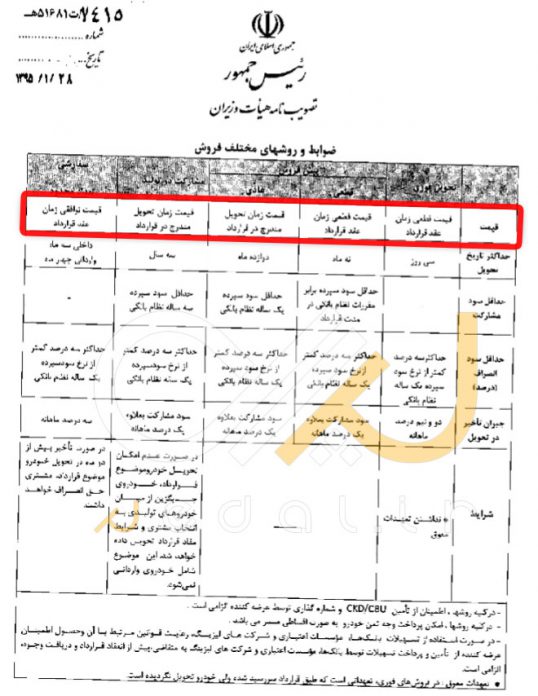 ۷۴۱۵/ت۵۱۶۸۱هـ
شماره
تاریخ
۱۳۹۵/۱/۲۸
جمهوری اسلامی ایران
رئیس جمهور
تصویب نامه هیأت وزیران
ضوابط و روشهای مختلف فروش
پیش فروش
تحویل فوری
قطعی
عادی
مشارکت در تولید
سفارشی
قیمت
قیمت قطعی زمان عقد قرارداد
قیمت قطعی زمان عقد قرارداد
قیمت زمان تحویل مندرج در قرارداد
قیمت زمان تحویل مندرج در قرارداد
قیمت توافقی زمان عقد قرارداد
حداکثر تاریخ تحویل
سی روز
نه ماه
دوازده ماه
سه سال
داخلی سه ماه
وارداتی چهار ماه
حداقل سود مشارکت
حداقل سود سپرده برابر مقررات نظام بانکی در مدت قرارداد
حداقل سود سپرده یک ساله نظام بانکی
حداقل سود سپرده سه ساله نظام بانکی
-
حداقل سود انصراف (درصد)
حداکثر سه درصد کمتر از نرخ سود سپرده یک ساله نظام بانکی
حداکثر سه درصد کمتر از نرخ سود سپرده یک ساله نظام بانکی
حداکثر سه درصد کمتر از نرخ سود سپرده یک ساله نظام بانکی
حداکثر سه درصد کمتر از نرخ سود سپرده یک ساله نظام بانکی
حداکثر سه درصد کمتر از نرخ سود سپرده یک ساله نظام بانکی
جبران تأخیر در تحویل
دو و نیم درصد ماهانه
سود مشارکت بعلاوه یک درصد ماهانه
سود مشارکت بعلاوه یک درصد ماهانه
سود مشارکت بعلاوه یک درصد ماهانه
سه درصد ماهانه
شرایط
* نداشتن تعهدات معوق
در صورت عدم امکان
تحویل خودرو موضوع
قرارداد، خودروی
جایگزین از میان
خودروهای تولیدی به
انتخاب مشتری و شرایط
مفاد قرارداد تحویل داده
خواهد شد. این موضوع
شامل خودروی وارداتی
نمی‌شود.
در صورت تأخیر بیش از
دو ماه در تحویل خودرو
موضوع قرارداد، مشتری
حق انصراف خواهد
داشت.
- در کلیه روشها، اطمینان از تأمین CKD/CBU و شماره گذاری توسط عرضه کننده الزامی است.
- در کلیه روشها، امکان پرداخت وجه ثمن خودرو به صورت اقساطی میسر می باشد.
- در صورت استفاده از تسهیلات بانکها، مؤسسات اعتباری و شرکت های لیزینگ، رعایت قوانین مرتبط با آن و حصول اطمینان
عرضه کننده از تأمین و پرداخت تسهیلات توسط بانک‌ها، مؤسسات اعتباری و شرکت های لیزینگ به متقاضی، پیش از انعقاد قرارداد و دریافت وجوه،
الزامی است.
* تعهدات معوق: در فروش‌های فوری، تعهداتی است که طبق قرارداد سررسید شده ولی خودرو تحویل نگردیده است.